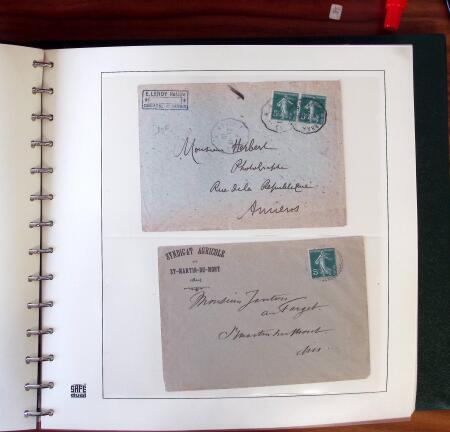 E. LEROY Notaire
Monsieur Herbert
Photographe
Rue de la République
Amiens
5
SYNDICAT AGRICOLE
DE
ST-MARTIN-DU-MONT
Monsieur
au Farget
St Martin du Mont
Ain
SAFE
dual